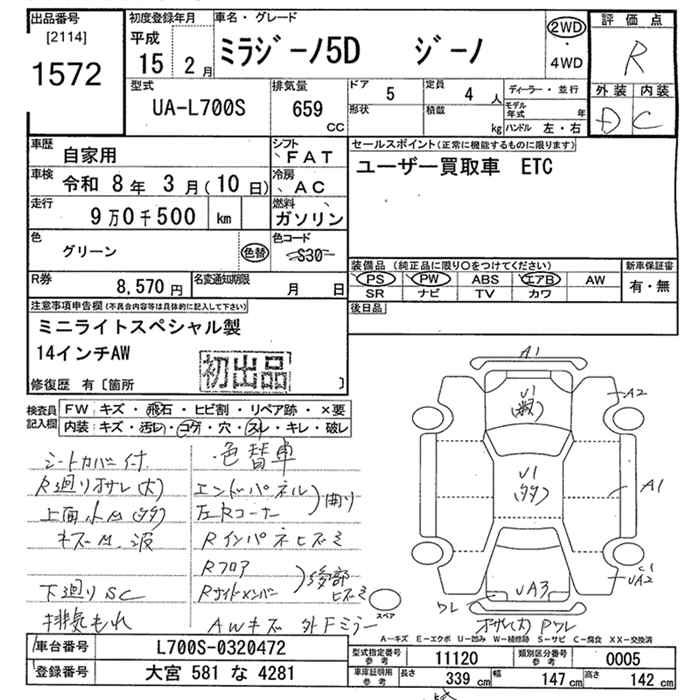 出品番号
[2114]
1572
初度登録年月
平成
15 2月
車名・グレード
ミラジーノ5D ジーノ
2WD
・
4WD
評価点
R
外装 内装
D C
型式
UA-L700S
排気量
659
CC
ドア
5
定員
4 人
形状
積載
kg
ディーラー・並行
モデル年式 年
ハンドル 左・右
車歴
自家用
シフト
FAT
セールスポイント(正常に機能するものに限ります)
ユーザー買取車 ETC
車検
令和 8年 3月(10日)
冷房
AC
走行
9万0千500 km
燃料
ガソリン
色
グリーン
色替
色コード
S30
装備品 (純正品に限り○をつけてください)
PS PW ABS エアB AW
SR ナビ TV カワ
新車保証書
有・無
R券
8,570円
名変通知期限
月 日
後日品
注意事項申告欄(不具合内容等は具体的に記入して下さい)
ミニライトスペシャル製
14インチAW
初出品
修復歴 有〔箇所 〕
検査員
記入欄
FW: キズ・飛石・ヒビ割・リペア跡・×要
内装: キズ・汚レ・コゲ・穴・スレ・キレ・破レ
シートカバー付
R廻りオサレ(大)
上面小M(多)
キズ M 波
下廻りSC
排気もれ
色替車
エンドパネル
左Rコーナー
曲り
Rインパネヒズミ
Rフロア
Rサイドメンバー
後部ヒズミ
AWキズ 外Fミラー
A1
U1
A2
U1
(多)
A1
C1
UA2
UA3
ワレ
オサレ(大) Pワレ
スペア
A−キズ E−エクボ U−凹み W−補修跡 S−サビ C−腐食 XX−交換済
車台番号
L700S-0320472
登録番号
大宮 581 な 4281
型式指定番号
参考
11120
類別区分番号
参考
0005
車庫証明用
参考
長さ
339 cm
幅
147 cm
高さ
142 cm